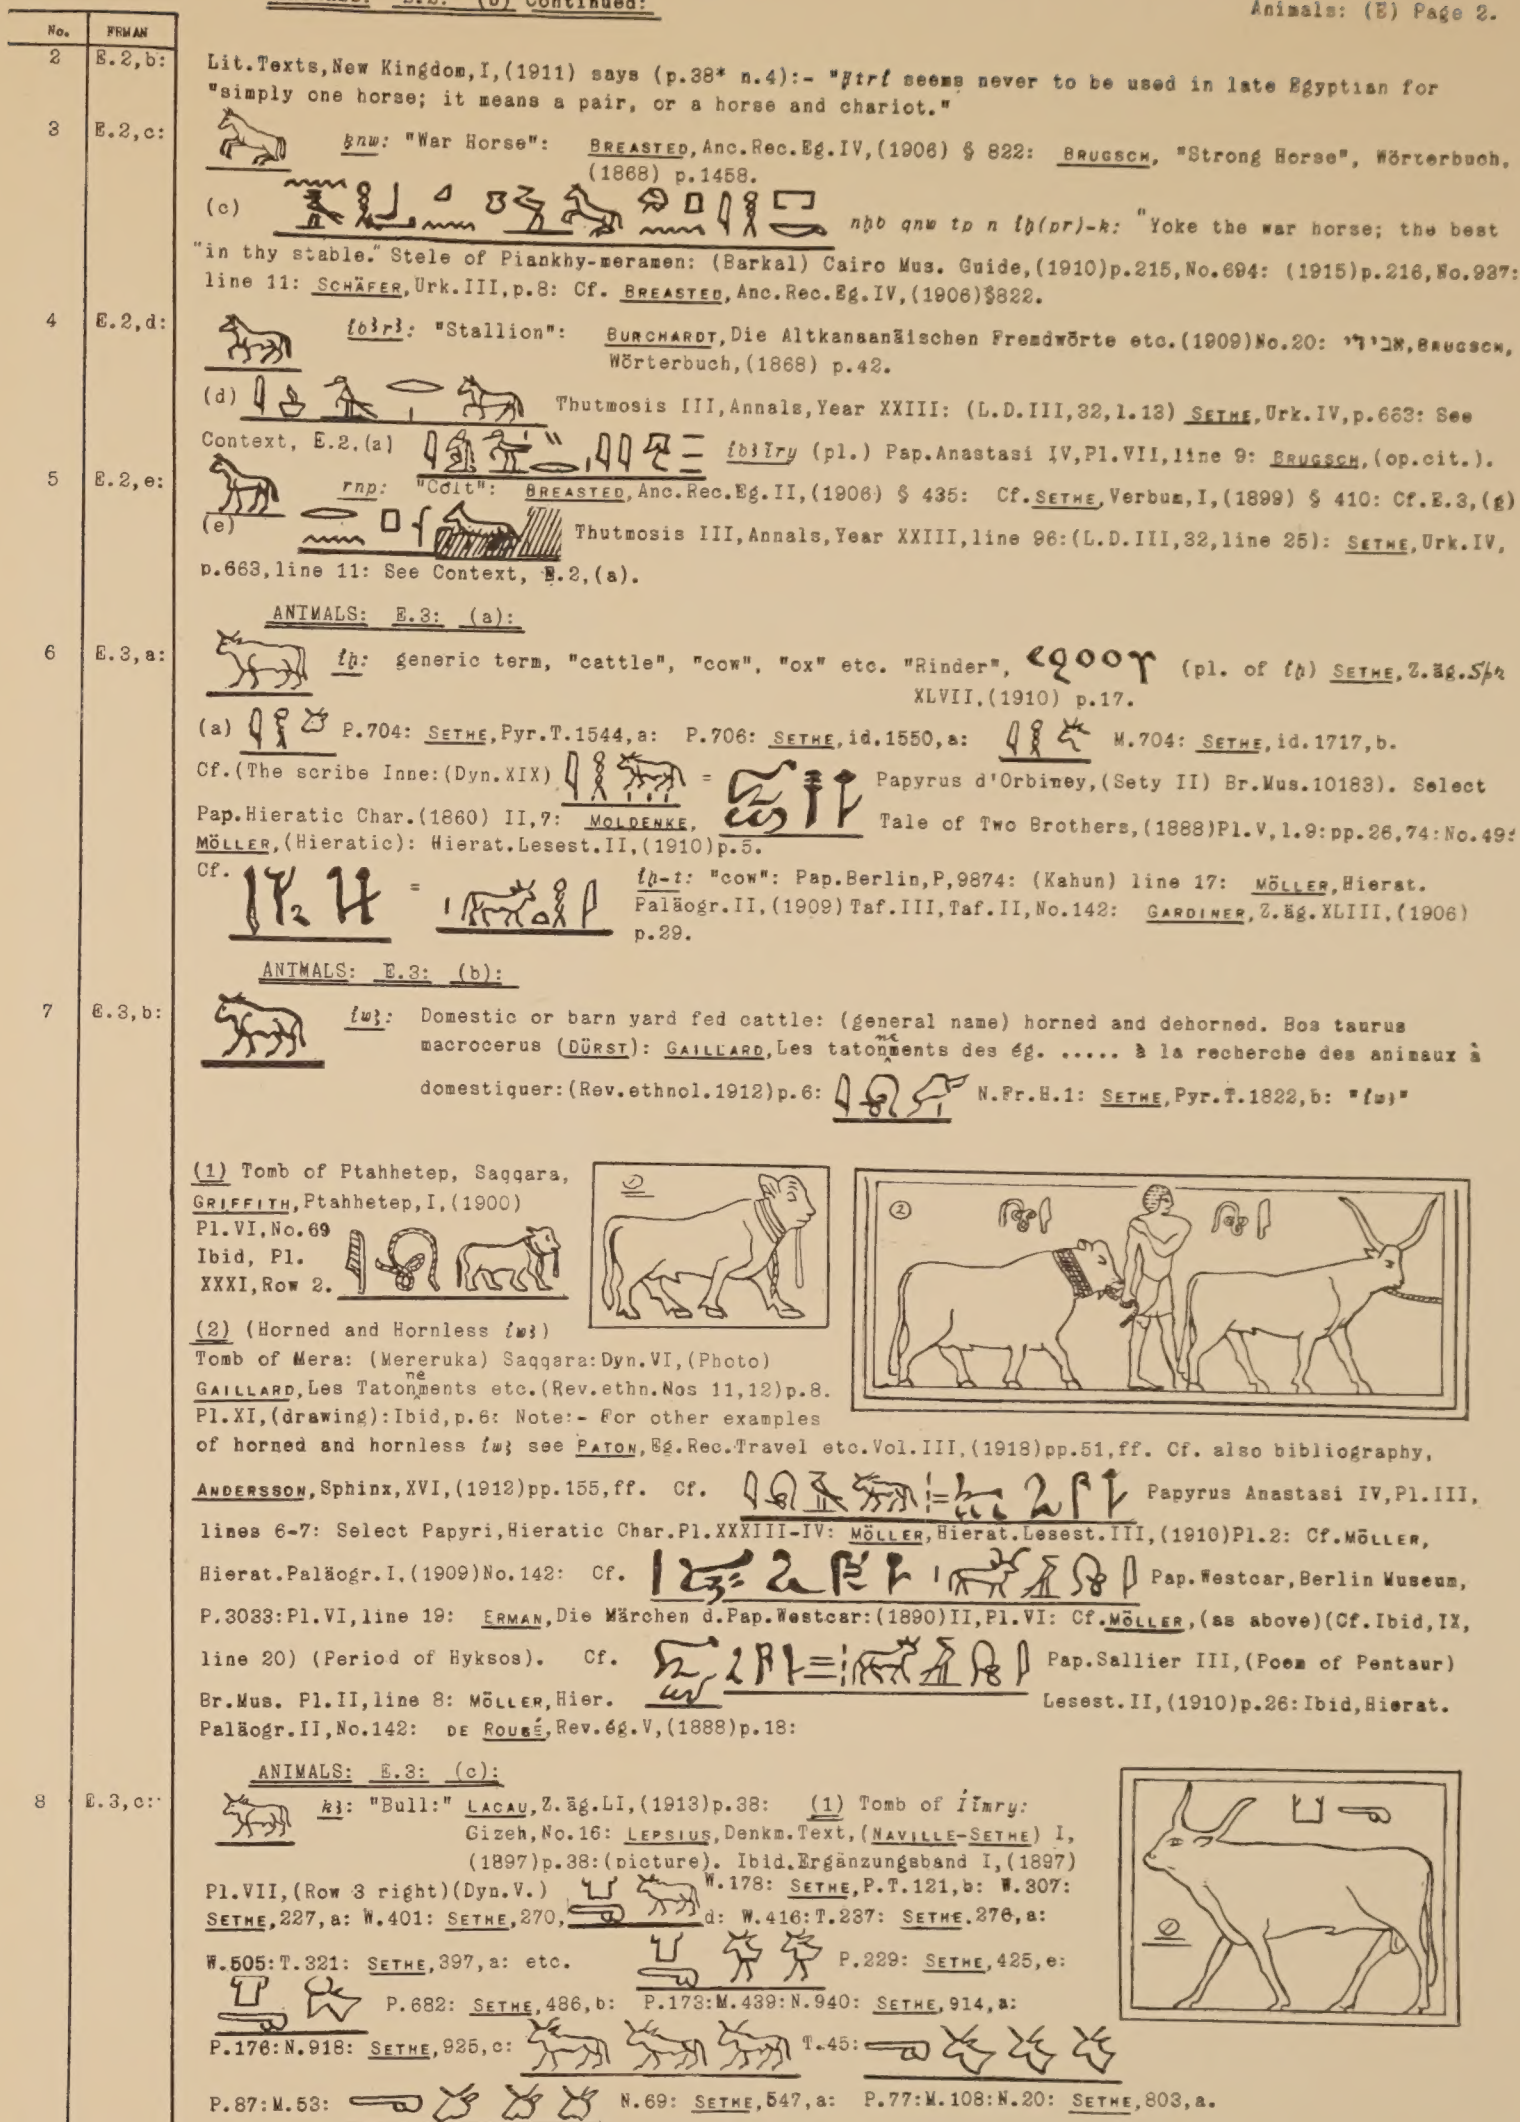 (b) Continued:
Animals: (E) Page 2.
No. ERMAN
2 E.2,b: Lit.Texts,New Kingdom,I,(1911) says (p.38* n.4):- "Ḥtrí seems never to be used in late Egyptian for
"simply one horse; it means a pair, or a horse and chariot."
3 E.2,c: ḳnw: "War Horse": BREASTED,Anc.Rec.Eg.IV,(1906) § 822: BRUGSCH, "Strong Horse", Wörterbuch,
(1868) p.1458.
(c) nḥb qnw tp n íḥ(pr)-k: "Yoke the war horse; the best
"in thy stable." Stele of Piankhy-meramen: (Barkal) Cairo Mus. Guide,(1910)p.215,No.694: (1915)p.216,No.937:
line 11: SCHÄFER,Urk.III,p.8: Cf. BREASTED,Anc.Rec.Eg.IV,(1906)§822.
4 E.2,d: íbꜣrꜣ: "Stallion": BURCHARDT,Die Altkanaanäischen Fremdwörte etc.(1909)No.20: BRUGSCH,
Wörterbuch,(1868) p.42.
(d) Thutmosis III,Annals,Year XXIII: (L.D.III,32,l.13) SETHE,Urk.IV,p.663: See
Context, E.2,(a) íbꜣĭry (pl.) Pap.Anastasi IV,Pl.VII,line 9: BRUGSCH,(op.cit.).
5 E.2,e: rnp: "Colt": BREASTED,Anc.Rec.Eg.II,(1906) § 435: Cf.SETHE,Verbum,I,(1899) § 410: Cf.E.3,(g)
(e) Thutmosis III,Annals,Year XXIII,line 96:(L.D.III,32,line 25): SETHE,Urk.IV,
p.663,line 11: See Context, E.2,(a).
ANIMALS: E.3: (a):
6 E.3,a: íḥ: generic term, "cattle", "cow", "ox" etc. "Rinder", ⲉϩⲟⲟⲩ (pl. of íḥ) SETHE,Z.äg.Spr
XLVII,(1910) p.17.
(a) P.704: SETHE,Pyr.T.1544,a: P.706: SETHE,id.1550,a: M.704: SETHE,id.1717,b.
Cf.(The scribe Inne:(Dyn.XIX) = Papyrus d'Orbiney,(Sety II) Br.Mus.10183). Select
Pap.Hieratic Char.(1860) II,7: MOLDENKE, Tale of Two Brothers,(1888)Pl.V,l.9:pp.26,74:No.49:
MÖLLER,(Hieratic): Hierat.Lesest.II,(1910)p.5.
Cf. = íḥ-t: "cow": Pap.Berlin,P,9874: (Kahun) line 17: MÖLLER,Hierat.
Paläogr.II,(1909)Taf.III,Taf.II,No.142: GARDINER,Z.äg.XLIII,(1906)
p.29.
ANIMALS: E.3: (b):
7 E.3,b: íwꜣ: Domestic or barn yard fed cattle: (general name) horned and dehorned. Bos taurus
macrocerus (DÜRST): GAILLARD,Les tatonnements des ég. ..... à la recherche des animaux à
domestiquer:(Rev.ethnol.1912)p.6: N.Fr.H.1: SETHE,Pyr.T.1822,b: "íwꜣ"
(1) Tomb of Ptahhetep, Saqqara,
GRIFFITH,Ptahhetep,I,(1900)
Pl.VI,No.69
Ibid, Pl.
XXXI,Row 2.
(2) (Horned and Hornless íwꜣ)
Tomb of Mera: (Mereruka) Saqqara:Dyn.VI,(Photo)
GAILLARD,Les Tatonnements etc.(Rev.ethn.Nos 11,12)p.8.
Pl.XI,(drawing):Ibid,p.6: Note:- For other examples
of horned and hornless íwꜣ see PATON,Eg.Rec.Travel etc.Vol.III,(1918)pp.51,ff. Cf. also bibliography,
ANDERSSON,Sphinx,XVI,(1912)pp.155,ff. Cf. = Papyrus Anastasi IV,Pl.III,
lines 6-7: Select Papyri,Hieratic Char.Pl.XXXIII-IV: MÖLLER,Hierat.Lesest.III,(1910)Pl.2: Cf.MÖLLER,
Hierat.Paläogr.I,(1909)No.142: Cf. Pap.Westcar,Berlin Museum,
P.3033:Pl.VI,line 19: ERMAN,Die Märchen d.Pap.Westcar:(1890)II,Pl.VI: Cf.MÖLLER,(as above)(Cf.Ibid,IX,
line 20) (Period of Hyksos). Cf. = Pap.Sallier III,(Poem of Pentaur)
Br.Mus. Pl.II,line 8: MÖLLER,Hier. Lesest.II,(1910)p.26:Ibid,Hierat.
Paläogr.II,No.142: DE ROUGÉ,Rev.ég.V,(1888)p.18:
ANIMALS: E.3: (c):
8 E.3,c: kꜣ: "Bull:" LACAU,Z.äg.LI,(1913)p.38: (1) Tomb of Íĭmry:
Gizeh,No.16: LEPSIUS,Denkm.Text,(NAVILLE-SETHE) I,
(1897)p.38:(picture). Ibid.Ergänzungsband I,(1897)
Pl.VII,(Row 3 right)(Dyn.V.) W.178: SETHE,P.T.121,b: W.307:
SETHE,227,a: W.401: SETHE,270, d: W.416:T.237: SETHE.276,a:
W.505:T.321: SETHE,397,a: etc. P.229: SETHE,425,e:
P.682: SETHE,486,b: P.173:M.439:N.940: SETHE,914,a:
P.176:N.918: SETHE,925,c: T.45:
P.87:M.53: N.69: SETHE,547,a: P.77:M.108:N.20: SETHE,803,a.